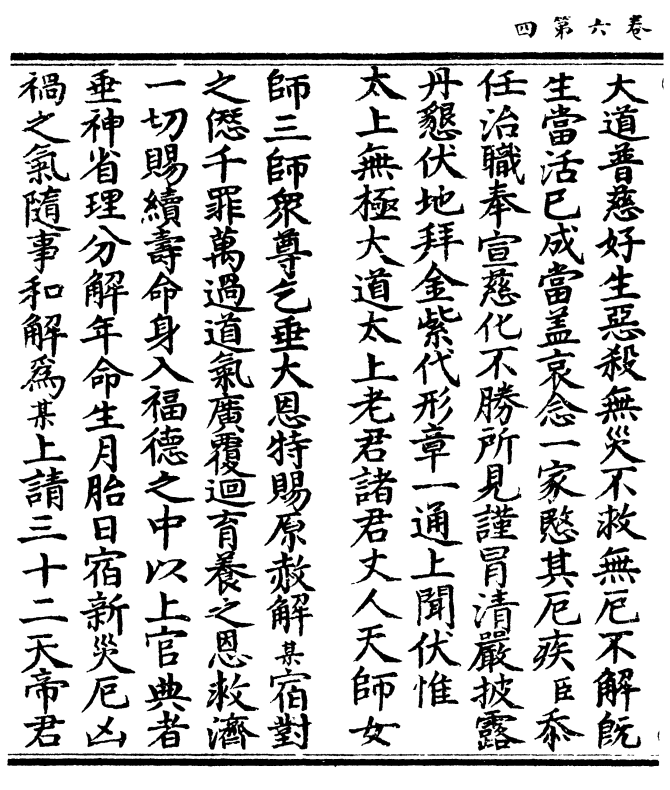 卷六第四
大道普慈好生惡殺無災不救無厄不解旣
生當活已成當盖哀念一家愍其厄疾臣忝
任治職奉宣慈化不勝所見謹冐清嚴披露
丹懇伏地拜金紫代形章一通上聞伏惟
太上無極大道太上老君諸君丈人天師女
師三師衆尊乞垂大恩特賜原赦解某宿對
之𠎝千罪萬過道氣廣覆迴育養之恩救濟
一切賜續壽命身入福德之中以上官典者
垂神省理分解年命生月胎日宿新災厄凶
禍之氣隨事和解爲某上請三十二天帝君